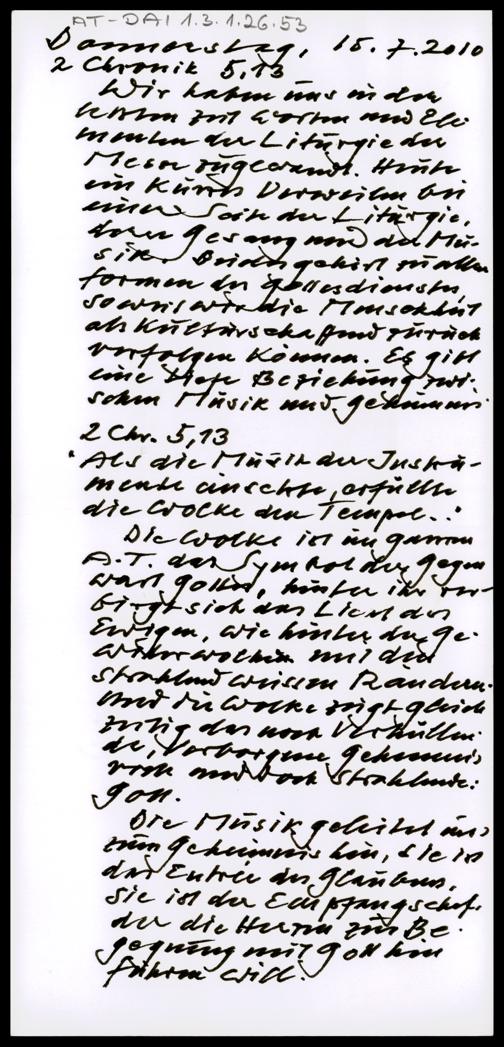 AT-DAI 1.3.1.26.53
Donnerstag, 15.7.2010
2 Chronik 5,13
Wir haben uns in der
letzten Zeit Worten und Ele
menten der Liturgie der
Messe zugewandt. Heute
ein kurzes Verweilen bei
einer Seite der Liturgie,
dem Gesang und der Mu-
sik. Beides gehört zu allen
Formen des Gottesdienstes
soweit wir die Menschheit
als kulturschaffend zurück
verfolgen können. Es gibt
eine tiefe Beziehung zwi-
schen Musik und Geheimnis
2 Chr. 5,13
"Als die Musik der Instru-
mente einsetzte, erfüllte
die Wolke den Tempel.."
Die Wolke ist im ganzen
A.T. das Symbol der Gegen
wart Gottes, hinter ihr ver-
birgt sich das Licht des
Ewigen, wie hinter den Ge-
witterwolken mit den
strahlend weissen Rändern.
Und die Wolke zeigt gleich
zeitig das noch Verhüllen-
de, Verborgene, Geheimnis
volle und doch Strahlende:
Gott.
Die Musik geleitet uns
zum Geheimnis hin, sie ist
das Entrée des Glaubens,
sie ist der Empfangschef,
der die Herzen zur Be-
gegnung mit Gott hin
führen will.